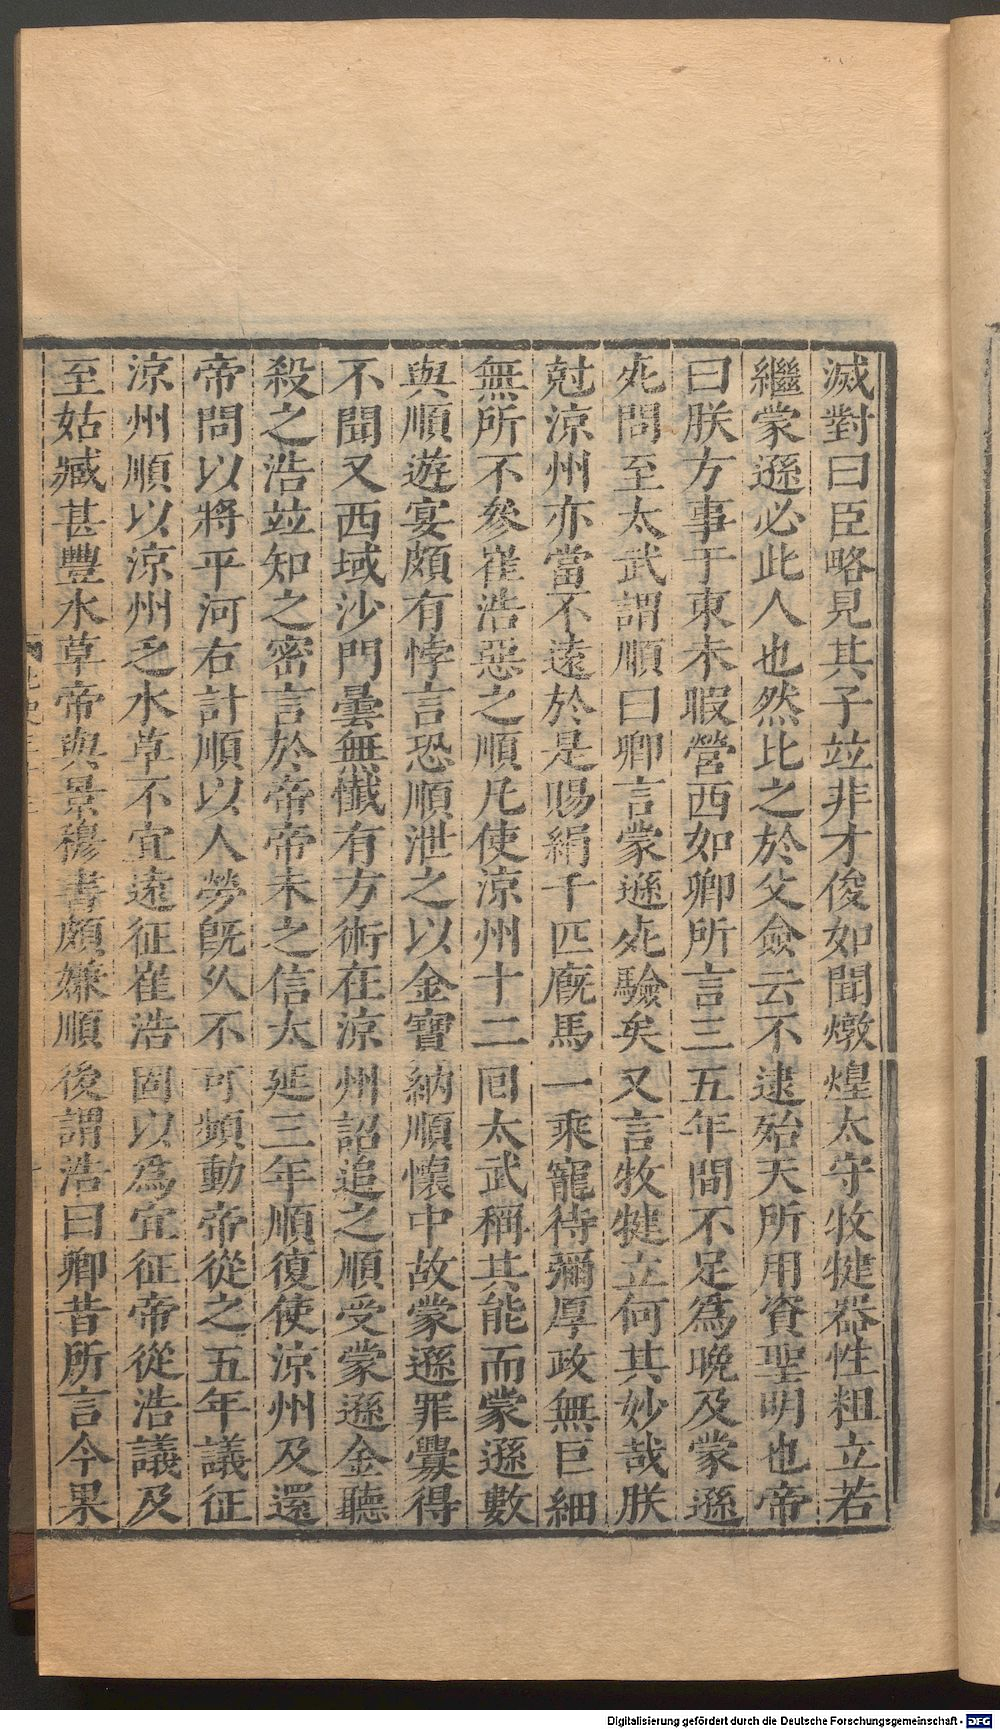 滅對曰臣略見其子竝非才俊如聞燉煌太守牧犍器性粗立若
繼蒙遜必此人也然比之於父僉云不逮殆天所用資聖明也帝
曰朕方事于東未暇營西如卿所言三五年間不足爲晩及蒙遜
死問至太武謂順曰卿言蒙遜死驗矣又言牧犍立何其妙哉朕
尅涼州亦當不遠於是賜絹千匹廐馬一乘寵待彌厚政無巨細
無所不參崔浩惡之順凡使涼州十二回太武稱其能而蒙遜數
與順遊宴頗有悖言恐順泄之以金寶納順懷中故蒙遜罪釁得
不聞又西域沙門曇無懺有方術在涼州詔追之順受蒙遜金聽
殺之浩竝知之密言於帝帝未之信太延三年順復使涼州及還
帝問以將平河右計順以人勞旣久不可頻動帝從之五年議征
涼州順以涼州乏水草不宜遠征崔浩固以爲宜征帝從浩議及
至姑臧甚豐水草帝與景穆書頗嫌順後謂浩曰卿昔所言今果
Digitalisierung gefördert durch die Deutsche Forschungsgemeinschaft - DFG